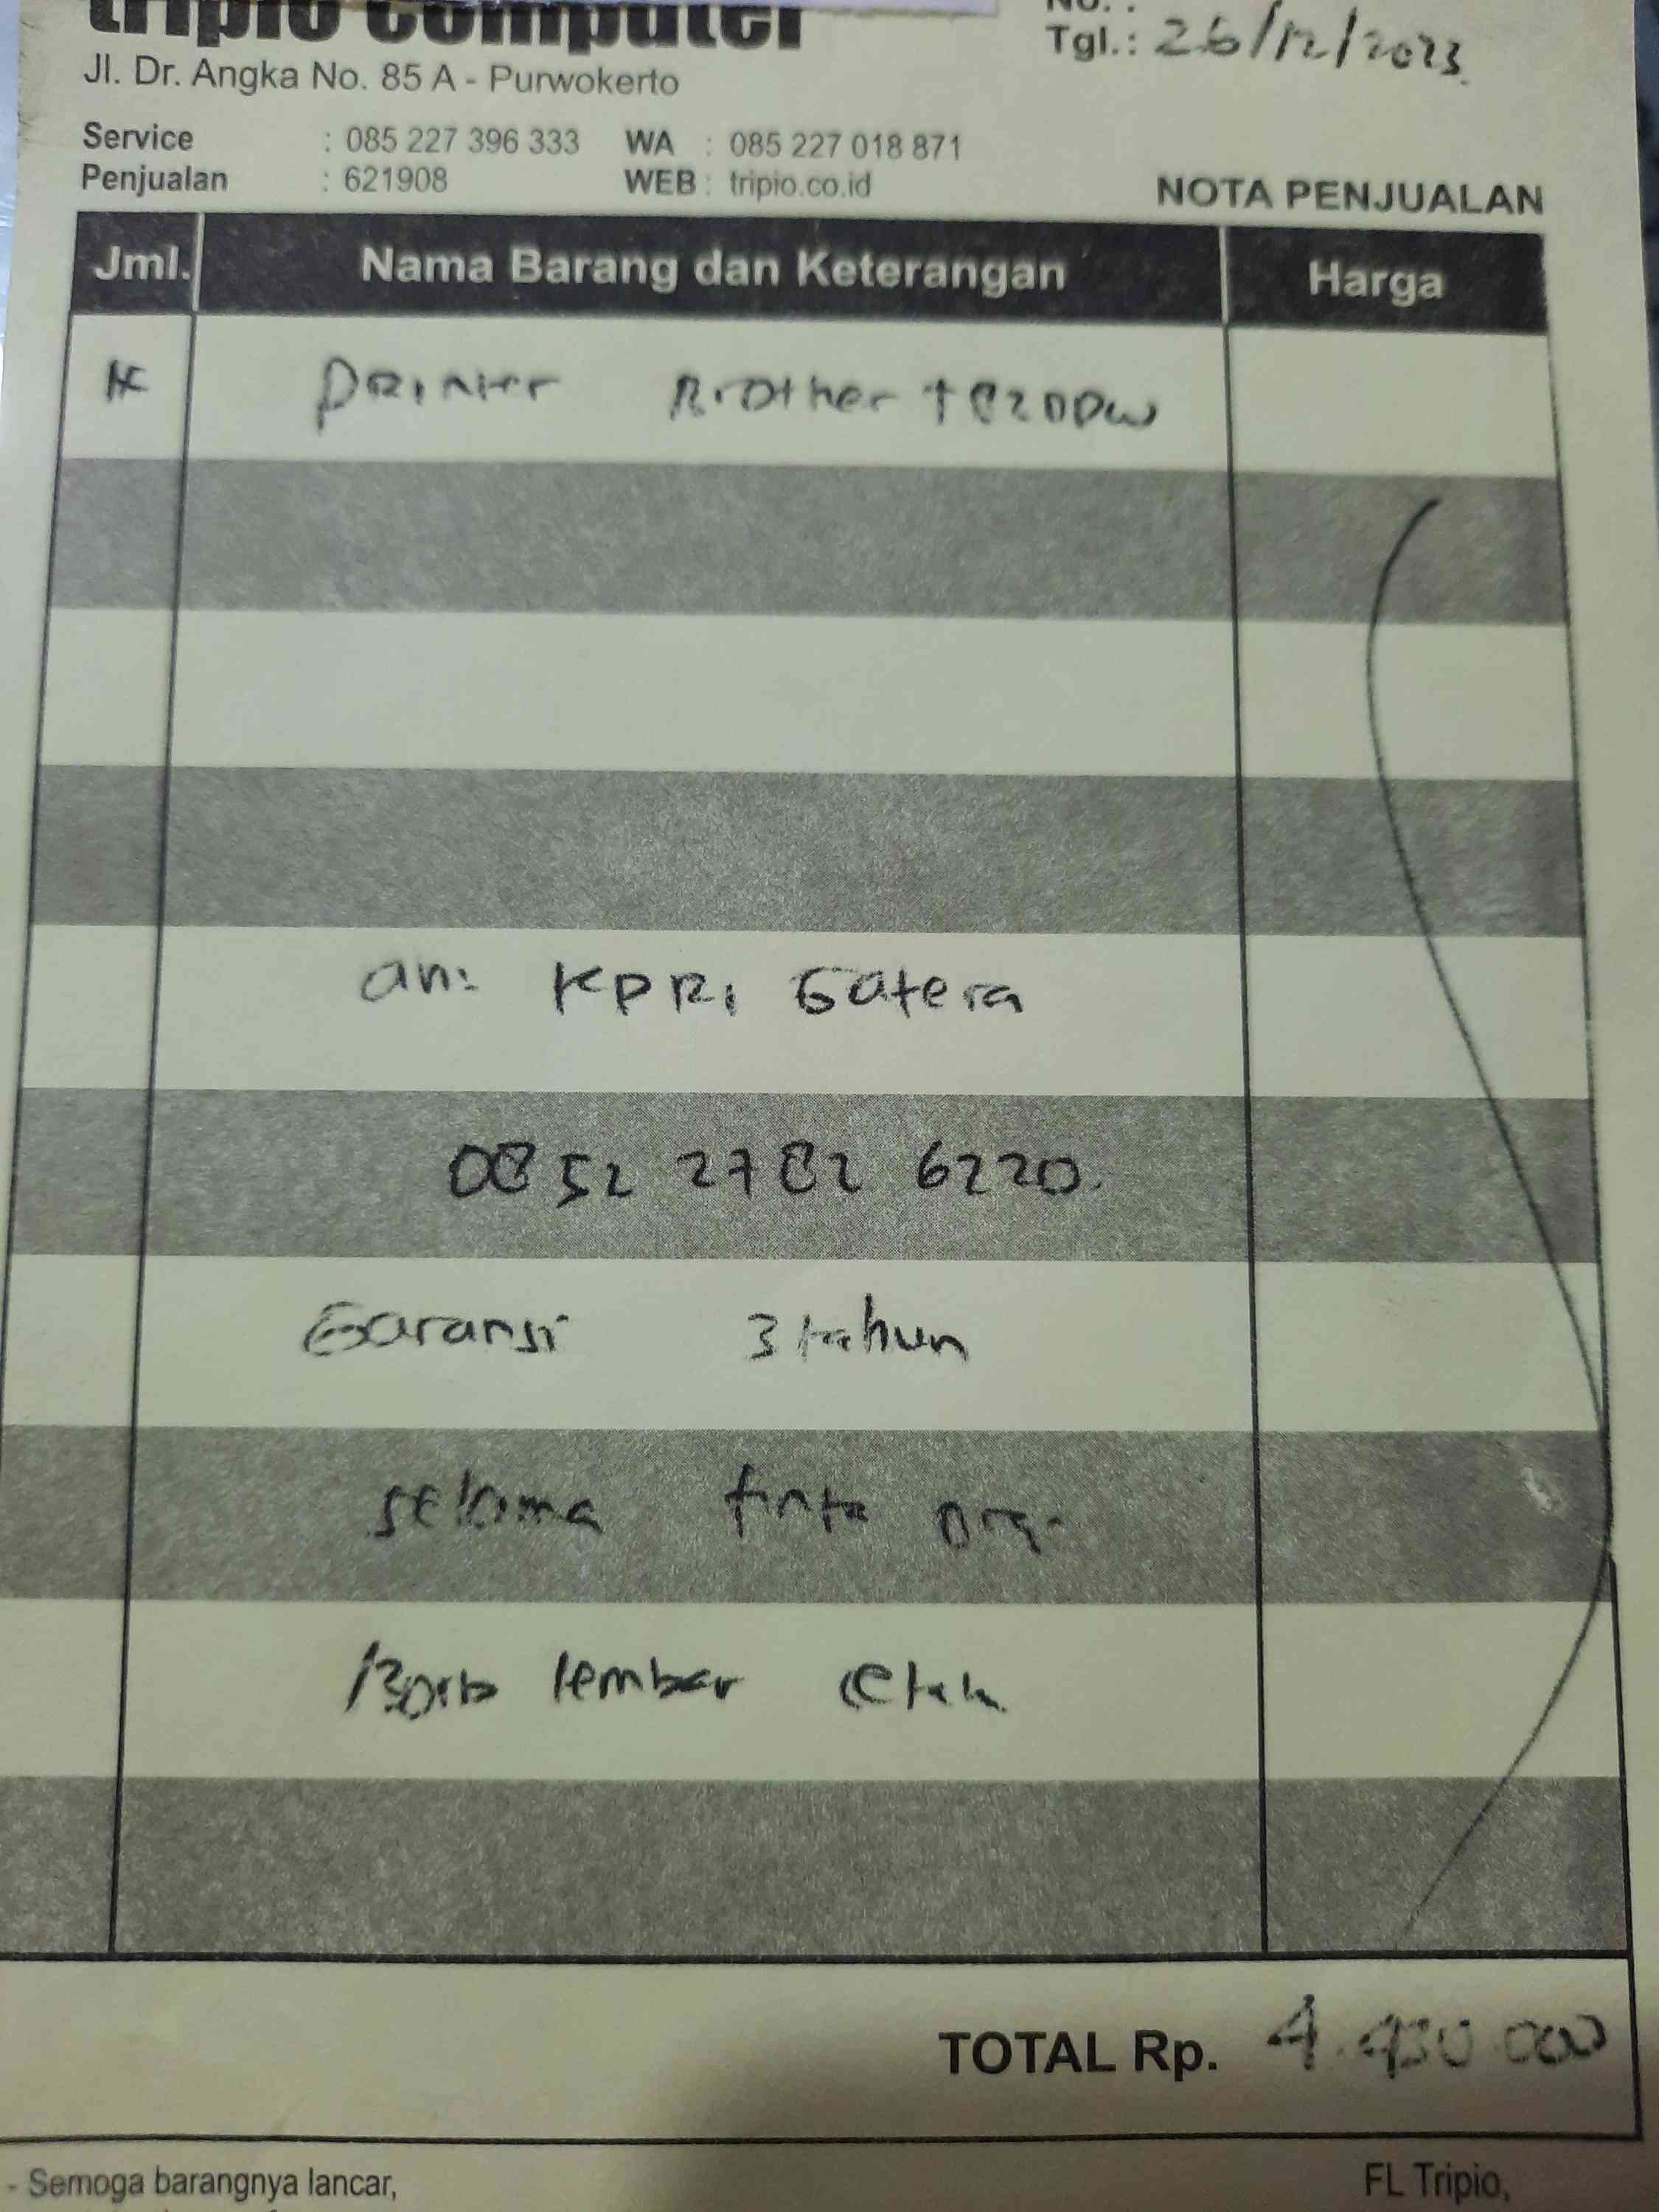 tripio computer
No. :
Tgl. : 26/12/2023
Jl. Dr. Angka No. 85 A - Purwokerto
Service : 085 227 396 333 WA : 085 227 018 871
Penjualan : 621908 WEB : tripio.co.id
NOTA PENJUALAN
Jml. Nama Barang dan Keterangan Harga
Printer Brother T820DW
an: KPRI Gatera
0852 2782 6220
Garansi 3 tahun
selama tinta
lembar cetak
TOTAL Rp. 4.430.000
- Semoga barangnya lancar,
FL Tripio,